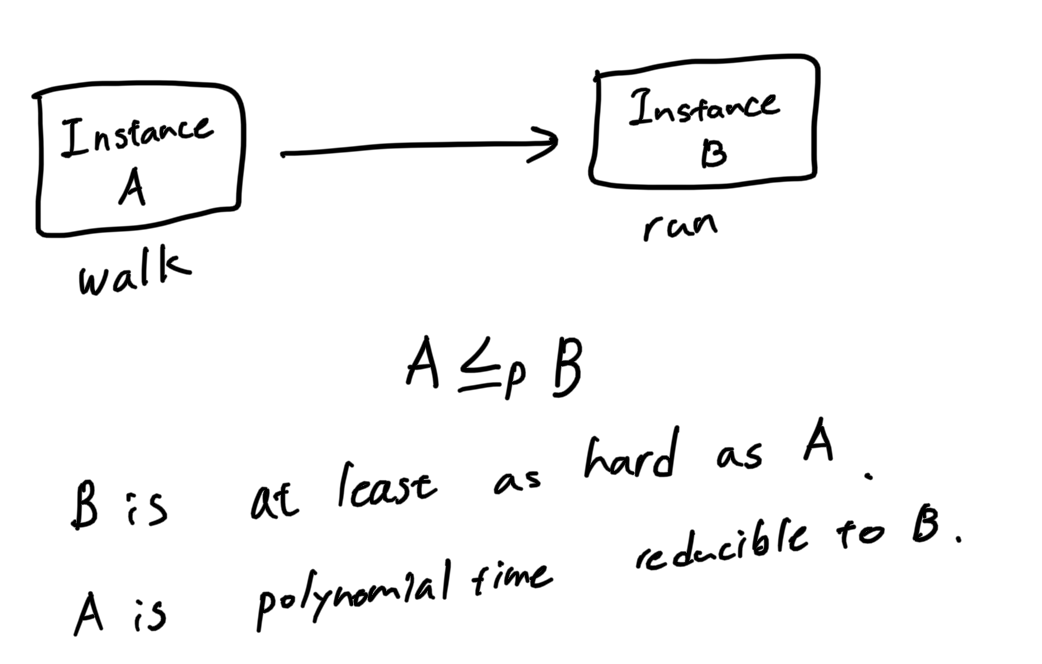 Instance
A
Instance
B
walk
run
A ≤p B
B is at least as hard as A.
A is polynomial time reducible to B.